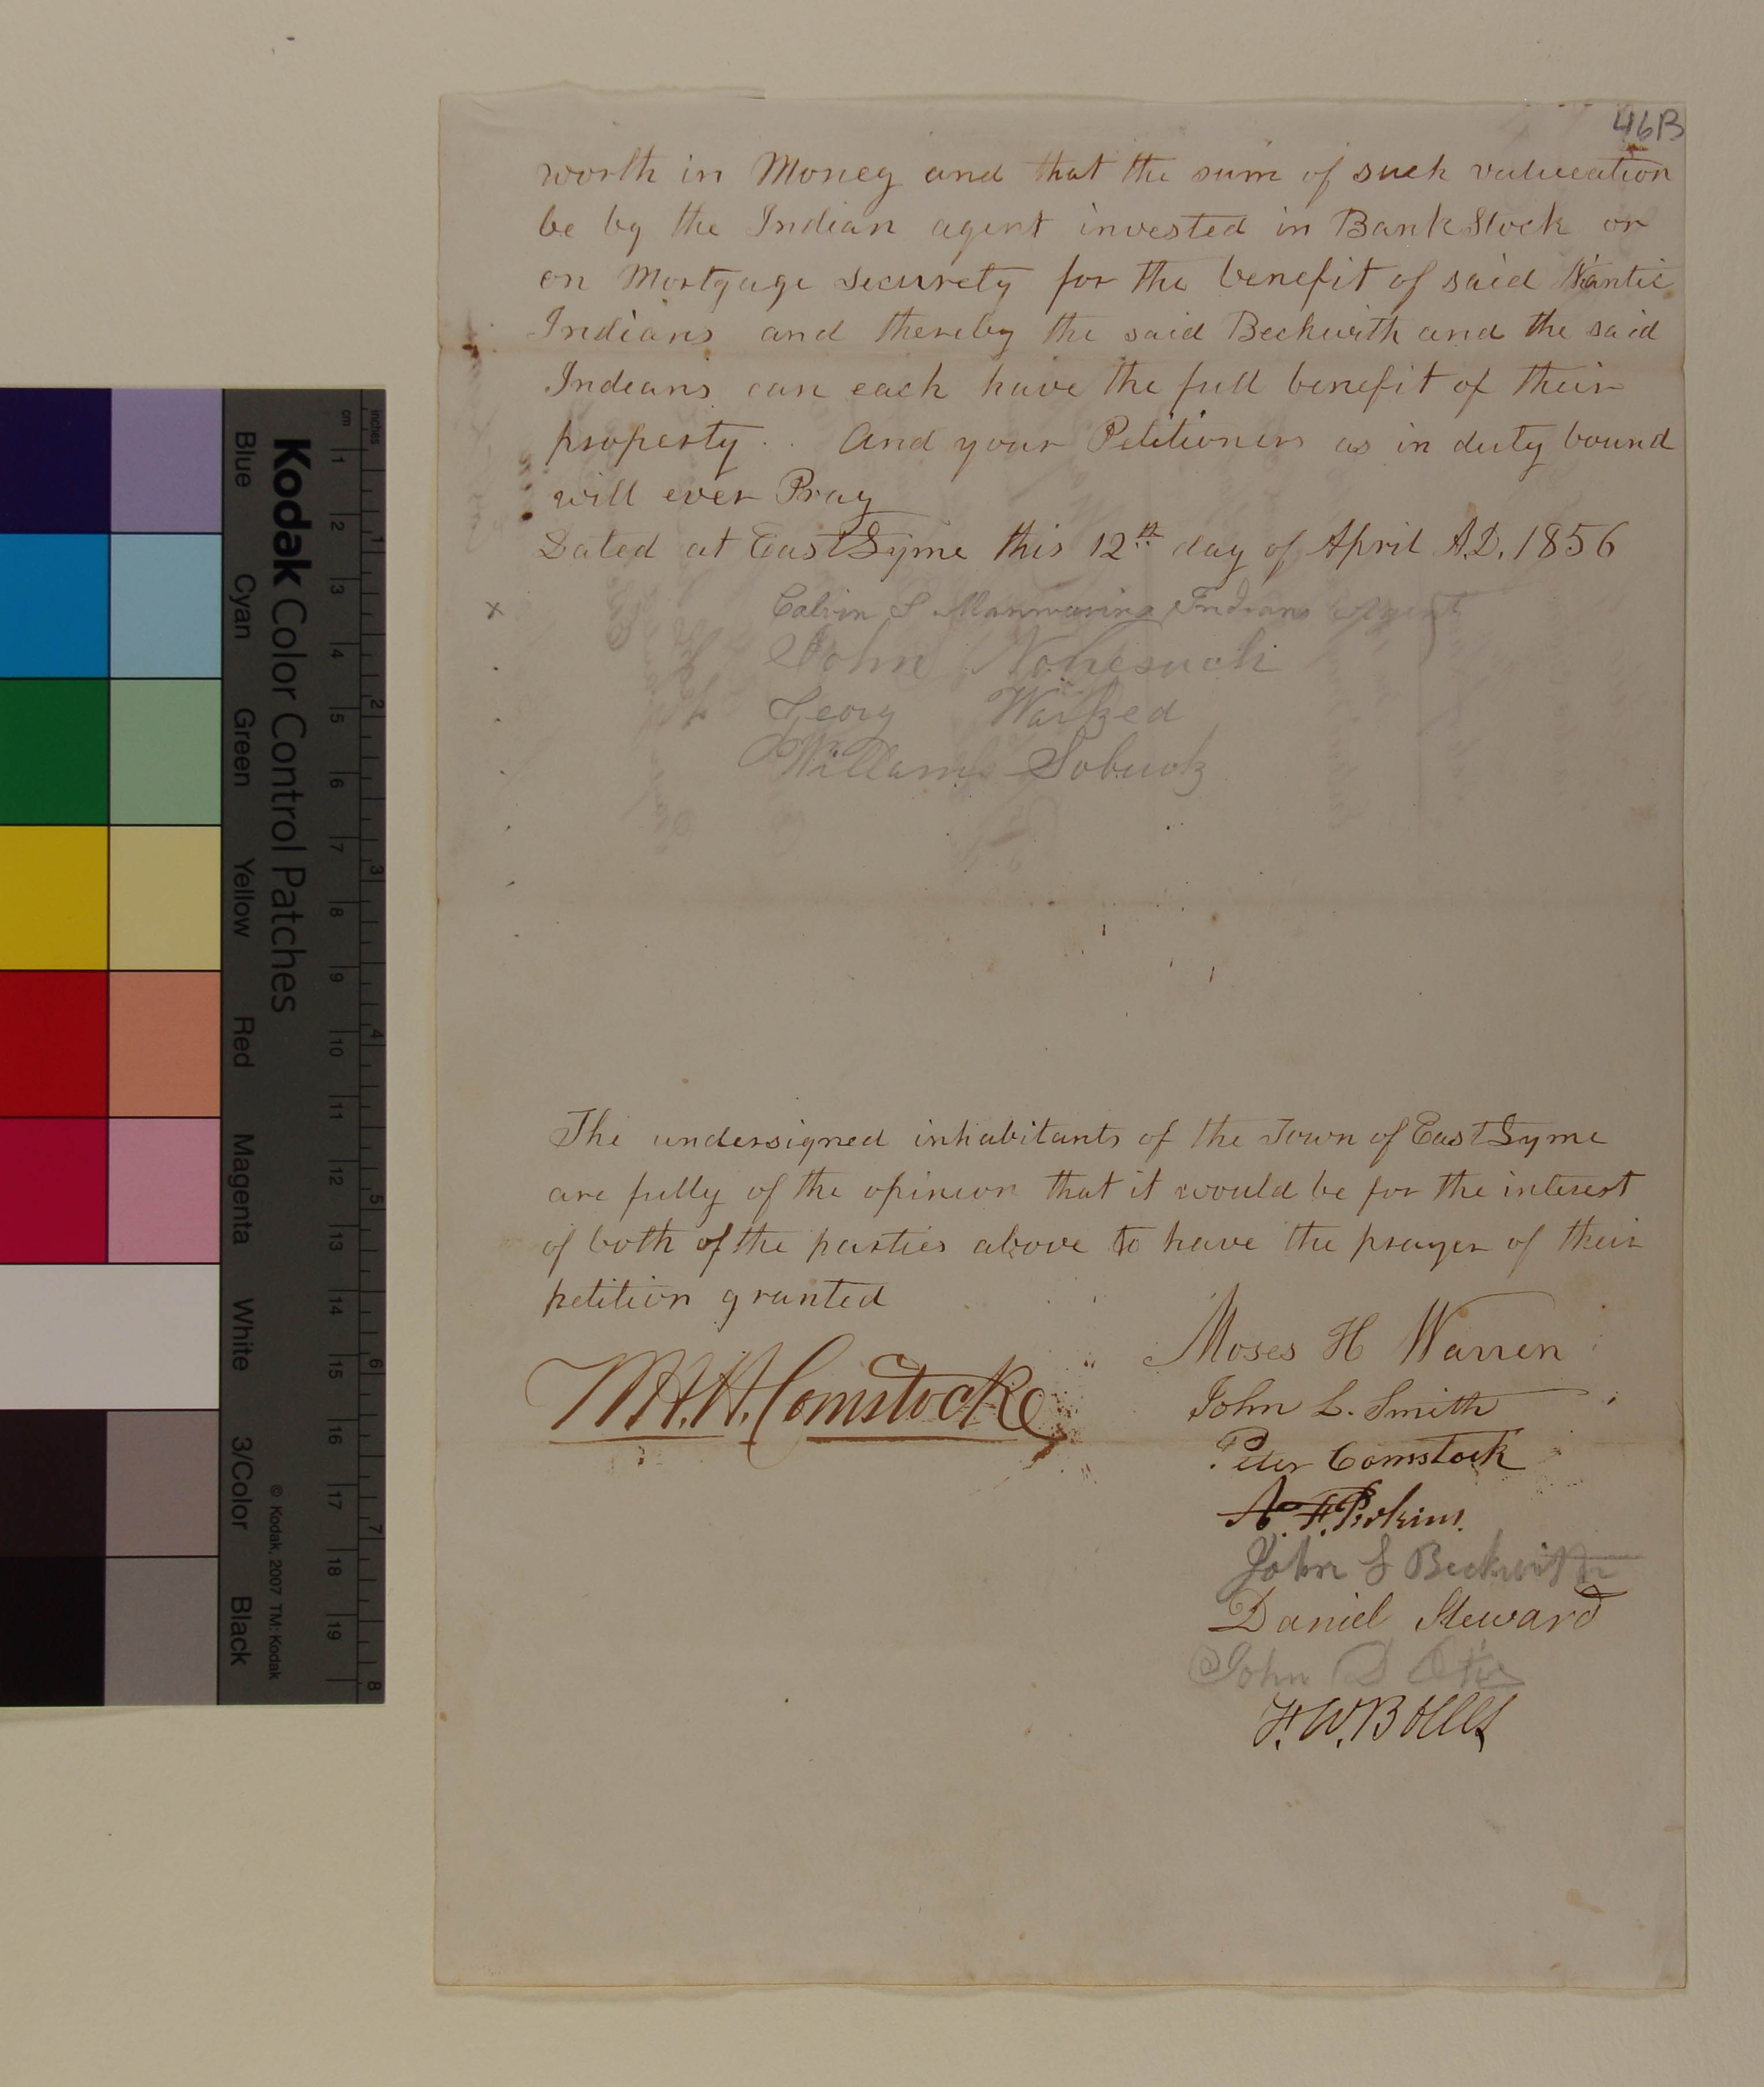 46B
worth in Money and that the sum of such valueation
be by the Indian agent invested in Bank Stock or
on Mortgage Securety for the benefit of said Niantic
Indians and thereby the said Beckwith and the said
Indians can each have the full benefit of their
property. And your Petitioners as in duty bound
will ever Pray
Dated at East Lyme this 12th day of April A.D. 1856
x
Calvin S Manwaring Indians Agent
John Nonesuch
Georg
Willam Sobuck
The undersigned inhabitants of the Town of East Lyme
are fully of the opinion that it would be for the interest
of both of the parties above to have the prayer of their
petition granted
Moses H Warren
W.H.H. Comstock
John L. Smith
Peter Comstock
A. F. Perkins.
John S Beckwith
Daniel Steward
John D Otis
F. W. Bolles
Kodak Color Control Patches
Blue Cyan Green Yellow Red Magenta White 3/Color Black
© Kodak, 2007 TM: Kodak
inches 1 2 3 4 5 6 7 8
cm 1 2 3 4 5 6 7 8 9 10 11 12 13 14 15 16 17 18 19